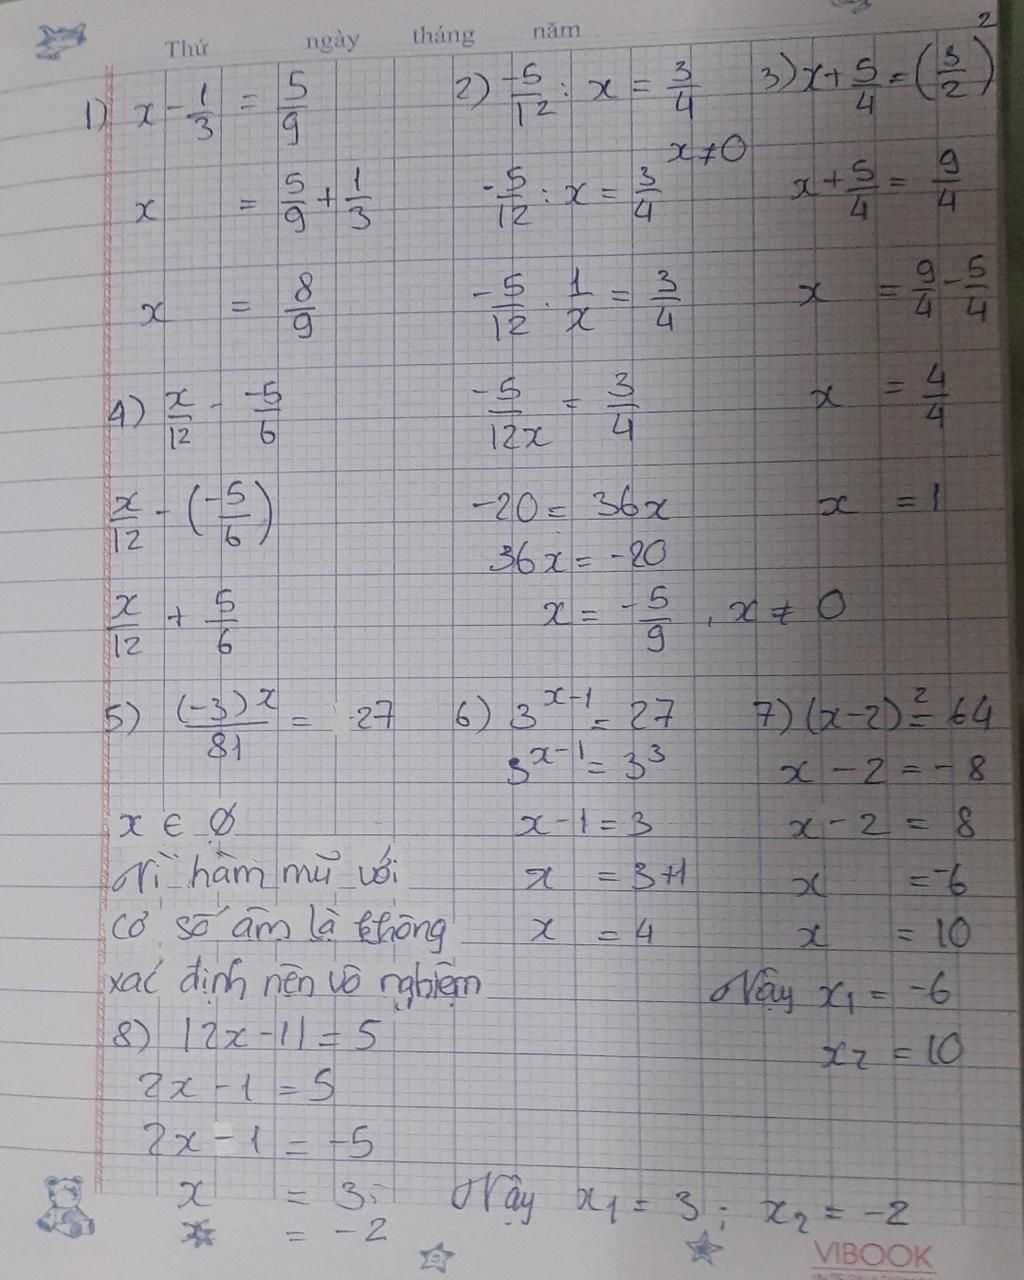 Thứ ngày tháng năm
1) x - 1/3 = 5/9
x = 5/9 + 1/3
x = 8/9
2) -5/12 : x = 3/4
x ≠ 0
-5/12 : x = 3/4
-5/12 . 1/x = 3/4
-5/12x = 3/4
-20 = 36x
36x = -20
x = -5/9 , x ≠ 0
3) x + 5/4 = (3/2)^2
x + 5/4 = 9/4
x = 9/4 - 5/4
x = 4/4
x = 1
4) x/12 - -5/6
x/12 - (-5/6)
x/12 + 5/6
5) (-3)^x/81 = -27
x ∈ ∅
Vì hàm mũ với
cơ số âm là không
xác định nên vô nghiệm
6) 3^x-1 = 27
3^x-1 = 3^3
x - 1 = 3
x = 3+1
x = 4
7) (x-2)^2 = 64
x - 2 = -8
x - 2 = 8
x = -6
x = 10
Vậy x1 = -6
x2 = 10
8) |2x-1| = 5
2x - 1 = 5
2x - 1 = -5
x = 3;
x = -2
Vậy x1 = 3 ; x2 = -2
VIBOOK